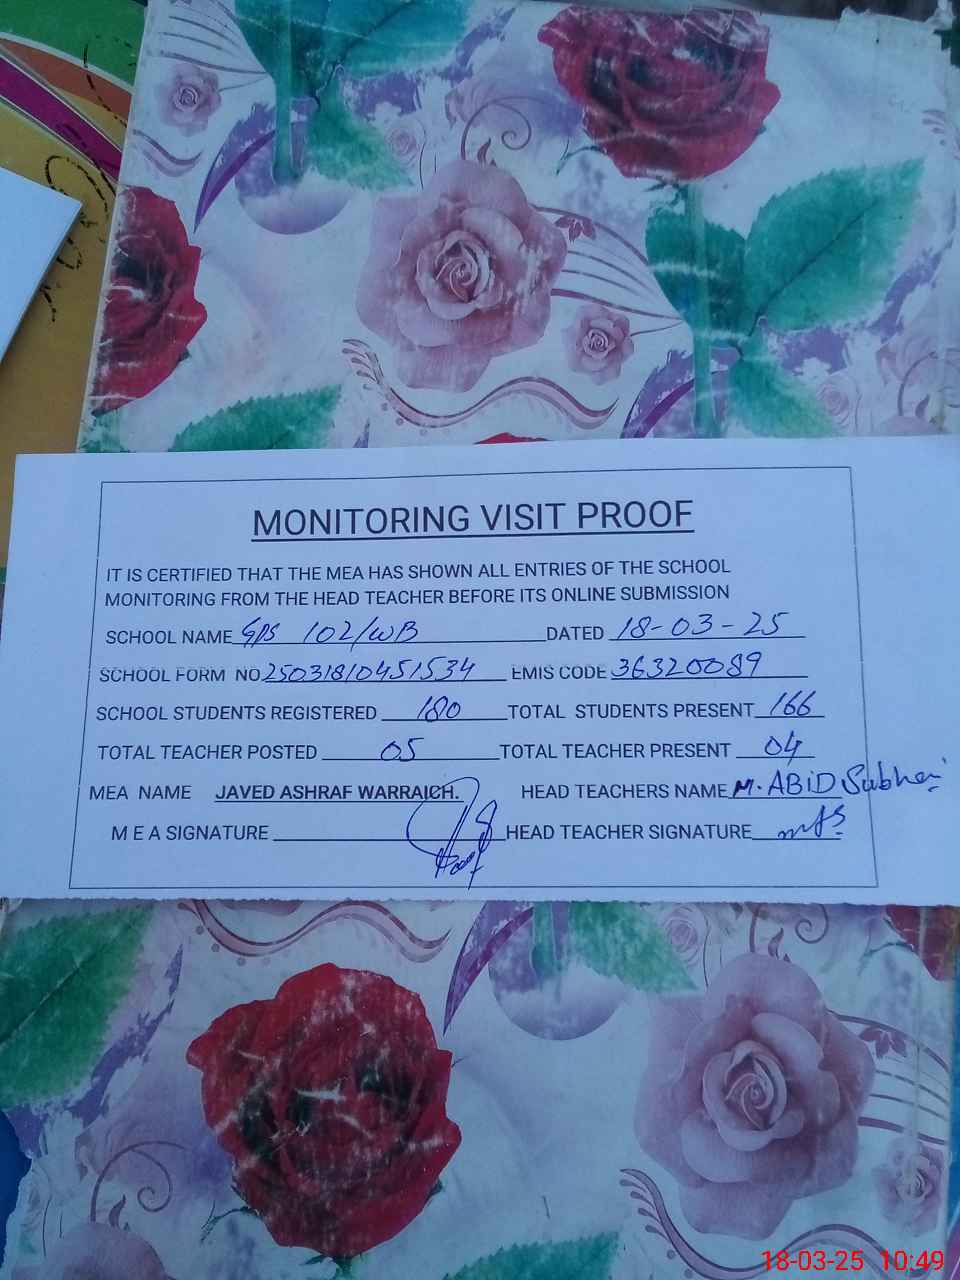 MONITORING VISIT PROOF
IT IS CERTIFIED THAT THE MEA HAS SHOWN ALL ENTRIES OF THE SCHOOL
MONITORING FROM THE HEAD TEACHER BEFORE ITS ONLINE SUBMISSION
SCHOOL NAME GPS 102/WB DATED 18-03-25
SCHOOL FORM NO 25031810451534 EMIS CODE 36320089
SCHOOL STUDENTS REGISTERED 180 TOTAL STUDENTS PRESENT 166
TOTAL TEACHER POSTED 05 TOTAL TEACHER PRESENT 04
MEA NAME JAVED ASHRAF WARRAICH. HEAD TEACHERS NAME M. ABID Subhani
M E A SIGNATURE HEAD TEACHER SIGNATURE
18-03-25 10:49